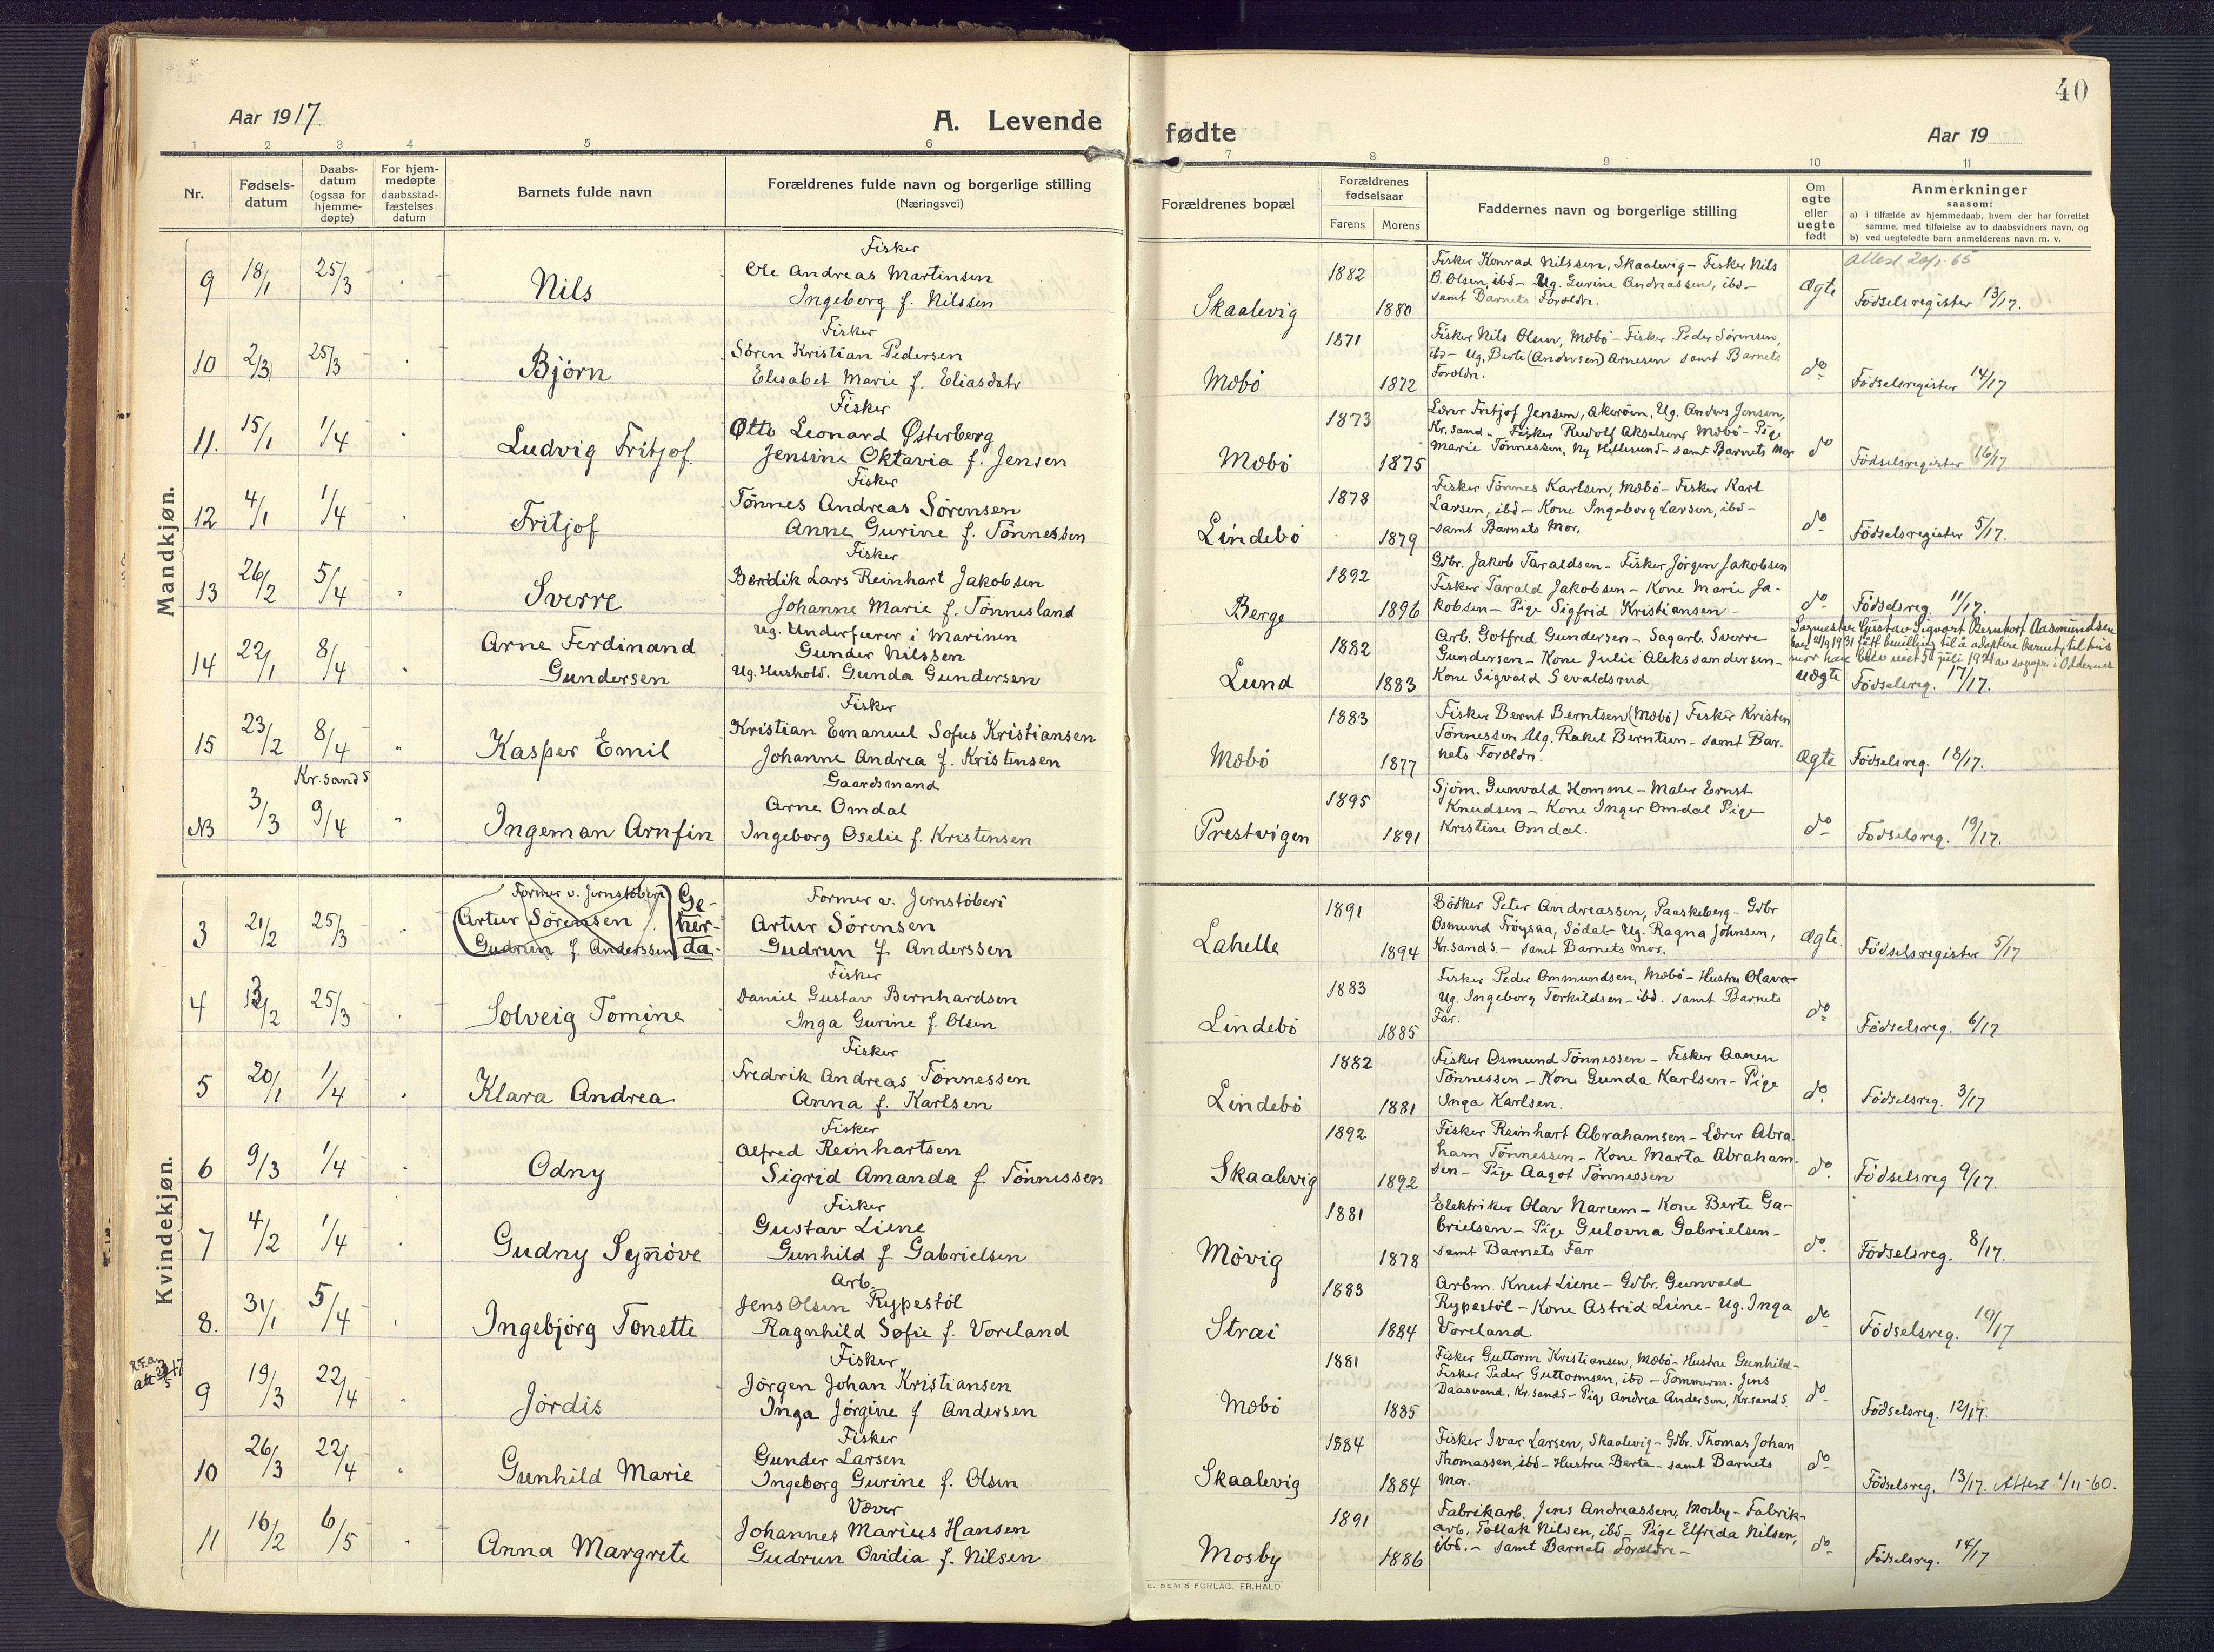 40
Aar 1917.
A. Levende
fødte
Aar 19
1 2 3 4 5 6 7 8 9 10 11
Nr.
Fødsels-
datum
Daabs-
datum
(ogsaa for
hjemme-
døpte)
For hjem-
medøpte
daabsstad-
fæstelses
datum
Barnets fulde navn
Forældrenes fulde navn og borgerlige stilling
(Næringsvei)
Forældrenes bopæl
Forældrenes
fødselsaar
Farens
Morens
Faddernes navn og borgerlige stilling
Om
egte
eller
uegte
født
Anmerkninger
saasom:
a) i tilfælde av hjemmedaab, hvem der har forrettet
samme, med tilføielse av to daabsvidners navn, og
b) ved uegtefødte barn anmelderens navn m. v.
Mandkjøn.
9 18/1 25/3 Nils
Fisker
Ole Andreas Martinsen
Ingeborg f. Nilssen
Skaalevig 1882 1880
Fisker Konrad Nilssen, Skaalevig – Fisker Nils
B. Olsen, ibd – Ug. Gurine Andreassen, ibd –
samt Barnets Foræld.
Ægte
Attest 20/1-65
Födselsregister 13/17.
10 2/3 25/3 Bjørn
Fisker
Sören Kristian Pedersen
Elisabet Marie f. Eliasdatr
Mæbö 1871 1872
Fisker Nils Olsen, Mæbö – Fisker Peder Sörensen,
ibd – Ug. Berte (Andersen) Arnesen samt Barnets
Foræld.
do
Födselsregister 14/17
11. 15/1 1/4 Ludvig Fritjof
Fisker
Otto Leonard Østerberg
Jensine Oktavia f. Jensen
Mæbö 1873 1875
Lærer Fritjof Jensen, Akeröen, Ug. Anders Jensen,
Kr.sand – Fisker Rudolf Akselsen, Mæbö – Pige
Marie Tönnessen, Ny Hellesund – samt Barnets Mor
do
Födselsregister 16/17
12 4/1 1/4 Fritjof
Fisker
Tönnes Andreas Sörensen
Anne Gurine f. Tönnessen
Lindebö 1878 1879
Fisker Tönnes Karlsen, Mæbö – Fisker Karl
Larsen, ibd – Kone Ingeborg Larsen, ibd –
samt Barnets Mor.
do
Födselsregister 5/17.
13 26/2 5/4 Sverre
Fisker
Bendik Lars Reinhart Jakobsen
Johanne Marie f. Tönnesland
Berge 1892 1896
Gdbr. Jakob Taraldsen – Fisker Jörgen Jakobsen
Fisker Tarald Jakobsen – Kone Marie Ja-
kobsen – Pige Sigfrid Kristiansen –
do
Födselsreg. 11/17.
14 22/1 8/4 Arne Ferdinand
Gundersen
Ug. Underfuerer i Marinen
Gunder Nilssen
Ug. Hushold. Gunda Gundersen
Lund 1882 1883
Arb. Gotfred Gundersen – Sagarb. Sverre
Gundersen – Kone Julie Aleksandersen –
Kone Sigvald Sevaldsrud
uægte
Gustav Sigvart Bernhoft Aasmundsen
har 21/9 1931 fått bevilling til å adoptere barnet, til hvis
mor han blev viet juli 1921 av i Oddernes
Födselsreg. 17/17.
15 23/2 8/4 Kasper Emil
Fisker
Kristian Emanuel Sofus Kristiansen
Johanne Andrea f. Kristensen
Mæbö 1883 1877
Fisker Bernt Berntsen (Mæbö) Fisker Kristen
Tönnessen Ug. Rakel Berntsen – samt Bar-
nets Foræld.
Ægte
Födselsreg. 18/17.
Kr.sand S
NB 3/3 9/4 Ingeman Arnfin
Gaardsmand
Arne Omdal
Ingeborg Oselie f. Kristensen
Prestvigen 1895 1891
Sjöm. Gunvald Homme – Maler Ernst
Knudsen – Kone Inger Omdal Pige
Kristine Omdal.
do
Födselsreg. 19/17.
Kvindekjøn.
3 21/2 25/3
Former v. Jernstöberi
Artur Sörensen
Gudrun f. Anderssen
Ge-
her-
da
Former v. Jernstöberi
Artur Sörensen
Gudrun f. Anderssen
Lahelle 1891 1894
Bödker Peter Andreassen, Paaskeberg – Gdbr
Osmund Fröysaa, Södal – Ug. Ragna Johnsen,
Kr.sand S – samt Barnets mor.
Ægte.
Födselsregister 5/17
4 25/3 Solveig Tomine
Fisker
Daniel Gustav Bernhardsen
Inga Gurine f. Olsen
Lindebö 1883 1885
Fisker Peder Ommundsen, Mæbö – Hustru Olava
Ug. Ingeborg Torkildsen – ibd. samt Barnets
Far.
do
Födselsreg. 6/17
5 20/1 1/4 Klara Andrea
Fisker
Fredrik Andreas Tönnessen
Anna f. Karlsen
Lindebö 1882 1881
Fisker Osmund Tönnessen – Fisker Aanen
Tönnessen – Kone Gunda Karlsen – Pige
Inga Karlsen.
do
Födselsreg. 3/17
6 9/3 1/4 Odny
Fisker
Alfred Reinhartsen
Sigrid Amanda f. Tönnessen
Skaalevig 1892 1892
Fisker Reinhart Abrahamsen – Lærer Abra-
ham Tönnessen – Kone Marta Abraham-
sen – Pige Aagot Tönnessen
do
Födselsreg 9/17.
7 4/2 1/4 Gudny Synöve
Fisker
Gustav Liene
Gunhild f. Gabrielsen
Mövig 1881 1878
Elektriker Olav Narum – Kone Berte Ga-
brielsen – Pige Gulovna Gabrielsen –
samt Barnets Far
do
Födselsreg. 8/17.
8. 31/1 5/4 Ingebjörg Tonette
Arb.
Jens Olsen Rypestöl
Ragnhild Sofie f. Voreland
Strai 1883 1884
Arbm. Knut Liene – Gdbr. Gunvald
Rypestöl – Kone Astrid Liene – Ug. Inga
Voreland.
do
Födselsreg. 10/17
9 19/3 22/4 Jördis
Fisker
Jörgen Johan Kristiansen
Inga Jörgine f Andersen
Mæbö 1881 1885
Fisker Guttorm Kristiansen, Mæbö – Hustru Gunhild –
Fisker Peder Guttormsen, ibd – Tömmerm. Jens
Daasvand, Kr.sand S – Pige Andrea Andersen, Kr.sand S.
do
Födselsreg. 12/17.
10 26/3 22/4 Gunhild Marie
Fisker
Gunder Larsen
Ingeborg Gurine f. Olsen
Skaalevig 1884 1884
Fisker Ivar Larsen, Skaalevig – Gdbr. Thomas Johan
Thomassen, ibd – Hustru Berta – samt Barnets
Mor.
do
Födselsreg. 13/17. Attest 1/11-60.
11 16/2 6/5 Anna Margrete
Væver
Johannes Marius Hansen
Gudrun Ovidia f. Nilsen
Mosby 1891 1886
Fabrikarb. Jens Andreassen, Mosby – Fabrik-
arb. Tollak Nilsen, ibd – Pige Elfrida Nilsen,
ibd. – samt Barnets Forældre –
do
Födselsreg. 14/17
E. SEM'S FORLAG. FR.HALD